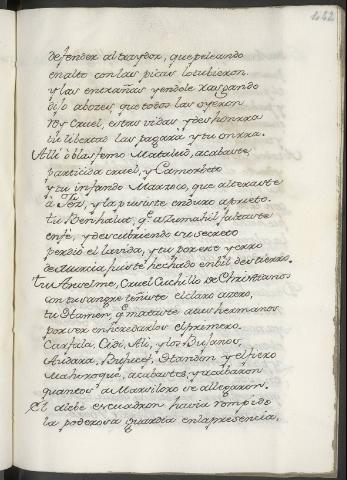 442
defender al traydor, que peleando
en alto con las picas lo tubieron.
y las entrañas yendole rasgando
dijo abozes que todos las oyeron
Rey Cruel, estas vidas y deshonrra
tu libertad las pagará y tu onrra.
Alli ó blasfemo Matalud, acabaste,
parricida cruel, y
y tu infando que alteraste
á Fez, y la pusiste en duro aprieto.
tu Benhalut, q.e a Zumahil faltaste
en fe, y descubriendo su secreto
perdió el la vida, y tu por este yerro
de Murcia fuiste hechado en bil destierro.
tu Anselmo, Cruel Cuchillo de Christianos
con su sangre teñiste el claro azero,
tu Itamon, q.e mataste a tus hermanos
por ser en heredarlos el primero.
Caxfula, Cidi, Ali, y los Bufanos,
Audara, y el fiero
acabastes, y acabaron
quantos á Marsiloxo se allegaron.
El aleve escuadron havia rompido
la poderosa guardia en la presencia,